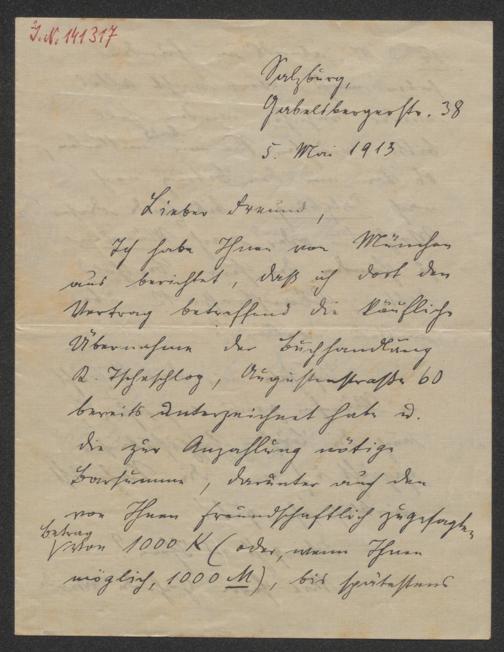 J.N. 141317
Salzburg,
Gabelsbergerstr. 38
5. Mai 1913
Lieber Freund,
Ich habe Ihnen von München
aus berichtet, daß ich dort den
Vertrag betreffend die käufliche
Übernahme der Buchhandlung
R. Tscheschlog, Augustenstraße 60
bereits unterzeichnet habe u.
die zur Anzahlung nötige
Barsumme, darunter auch den
von Ihnen freundschaftlich zugesagten
Betrag
von 1000 K (oder, wenn Ihnen
möglich, 1000 M), bis spätestens